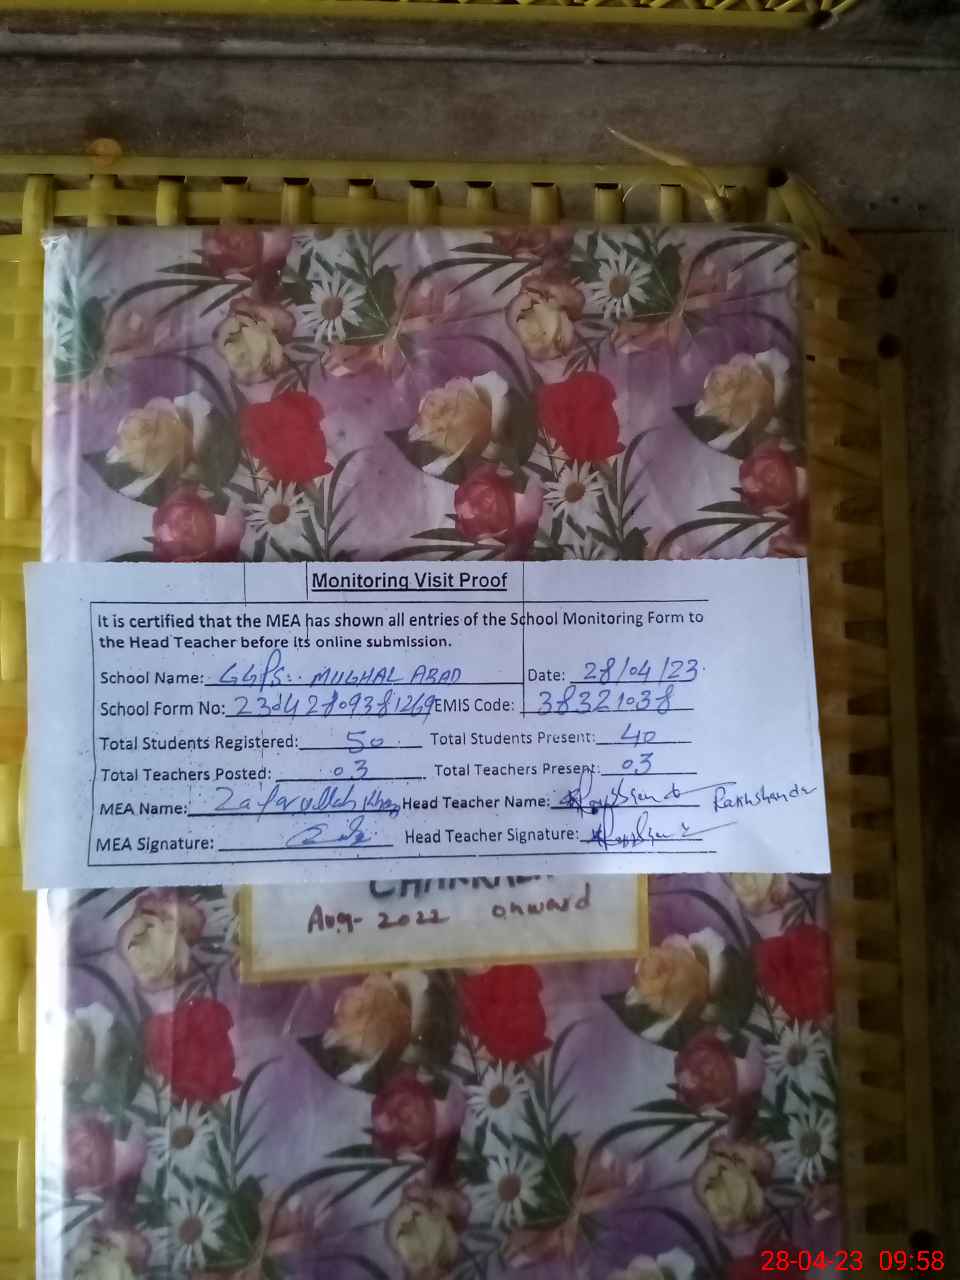 Monitoring Visit Proof
It is certified that the MEA has shown all entries of the School Monitoring Form to
the Head Teacher before its online submission.
School Name: GGPS. MUGHAL ABAD Date: 28/04/23
School Form No: EMIS Code: 38321038
Total Students Registered: 50 Total Students Present: 40
Total Teachers Posted: 03 Total Teachers Present: 03
MEA Name: Zafarullah Khan Head Teacher Name: Rakhshanda
MEA Signature: Head Teacher Signature:
Aug-2022 onward
28-04-23 09:58